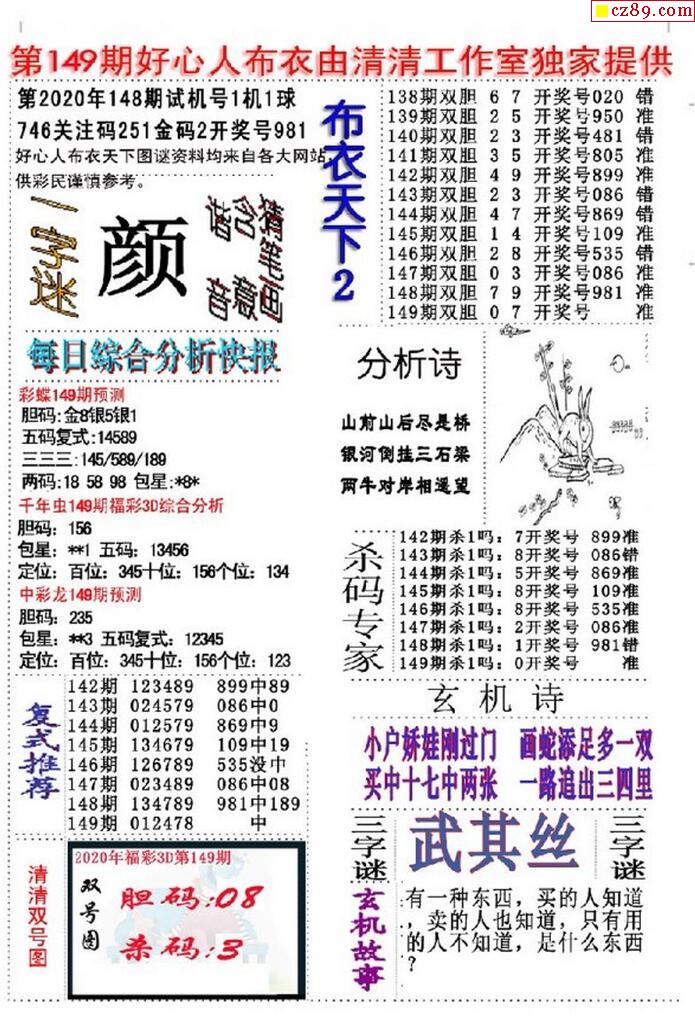 cz89.com
第149期好心人布衣由清清工作室独家提供
第2020年148期试机号1机1球
746关注码251金码2开奖号981
好心人布衣天下图谜资料均来自各大网站
供彩民谨慎参考。
一字迷
颜
谐音
含意
猜笔画
每日综合分析快报
彩蝶149期预测
胆码:金8银5银1
五码复式:14589
三三三:145/589/189
两码:18 58 98 包星:*8*
千年虫149期福彩3D综合分析
胆码: 156
包星: **1 五码: 13456
定位: 百位: 345十位: 156个位: 134
中彩龙149期预测
胆码: 235
包星: **3 五码复式: 12345
定位: 百位: 345十位: 156个位: 123
复式推荐
142期 123489 899中89
143期 024579 086中0
144期 012579 869中9
145期 134679 109中19
146期 126789 535没中
147期 023489 086中08
148期 134789 981中189
149期 012478 中
清清双号图
2020年福彩3D第149期
双号图
胆码:08
杀码:3
布衣天下2
138期双胆 6 7 开奖号020 错
139期双胆 2 5 开奖号950 准
140期双胆 2 3 开奖号481 错
141期双胆 3 5 开奖号805 准
142期双胆 4 9 开奖号899 准
143期双胆 2 3 开奖号086 错
144期双胆 4 7 开奖号869 错
145期双胆 1 4 开奖号109 准
146期双胆 2 8 开奖号535 错
147期双胆 0 3 开奖号086 准
148期双胆 7 9 开奖号981 准
149期双胆 0 7 开奖号 准
分析诗
山前山后尽是桥
银河倒挂三石梁
两牛对岸相遥望
杀码专家
142期杀1吗: 7开奖号 899准
143期杀1吗: 8开奖号 086错
144期杀1吗: 5开奖号 869准
145期杀1吗: 8开奖号 109准
146期杀1吗: 8开奖号 535准
147期杀1吗: 2开奖号 086准
148期杀1吗: 1开奖号 981错
149期杀1吗: 0开奖号 准
玄机诗
小户娇娃刚过门 画蛇添足多一双
买中十七中两张 一路追出三四里
三字谜
武其丝
三字谜
玄机故事
有一种东西，买的人知道
，卖的人也知道，只有用
的人不知道，是什么东西
？